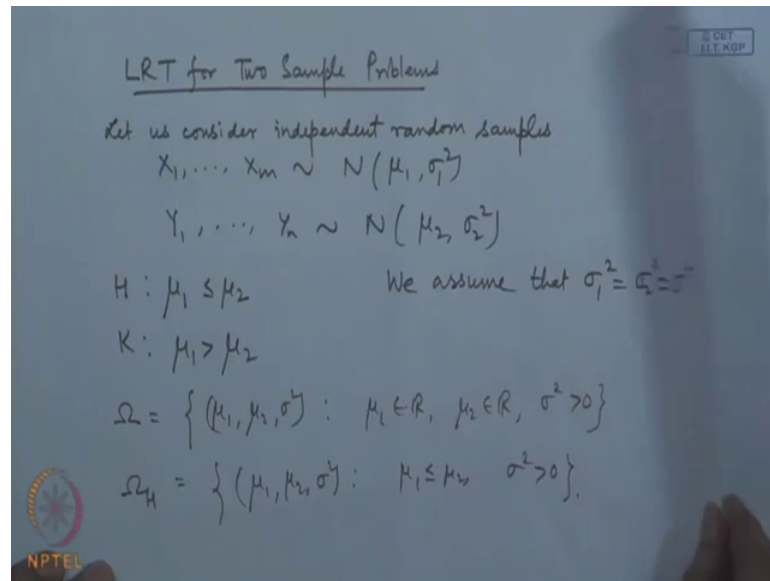 © CET
I.I.T. KGP
LRT for Two Sample Problems
Let us consider independent random samples
X₁, ..., Xₘ ~ N(μ₁, σ₁²)
Y₁, ..., Yₙ ~ N(μ₂, σ₂²)
H : μ₁ ≤ μ₂ We assume that σ₁² = σ₂² =
K : μ₁ > μ₂
Ω = {(μ₁, μ₂, σ²) : μ₁ ∈ ℝ, μ₂ ∈ ℝ, σ² > 0}
Ω_H = {(μ₁, μ₂, σ²) : μ₁ ≤ μ₂, σ² > 0}.
NPTEL